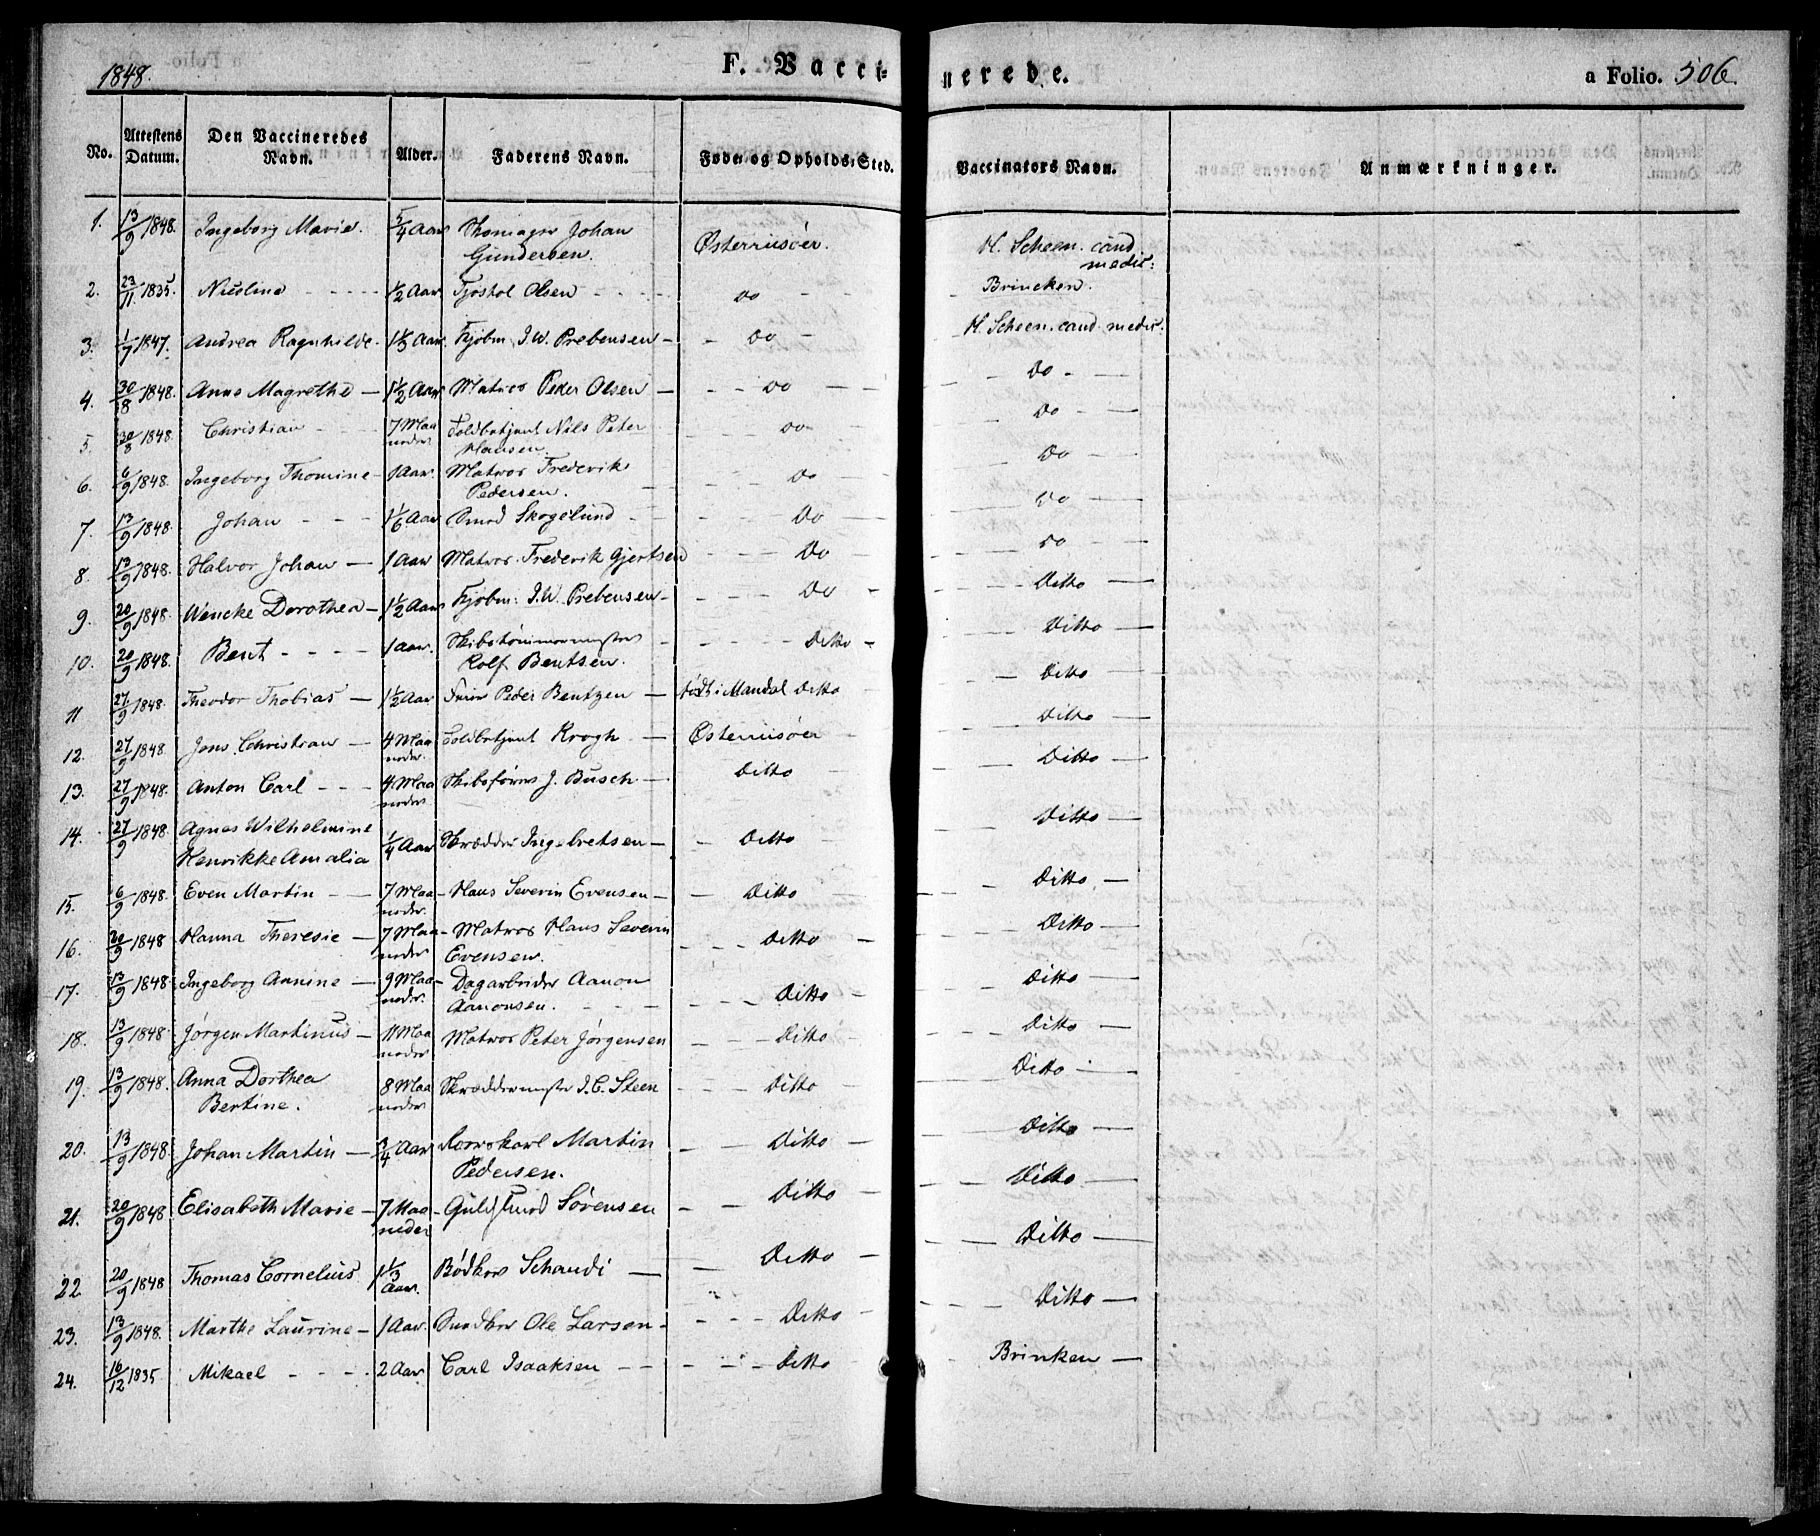 1848. F. Vacci- nerede. a Folio. 506.
No. Attestens Datum. Den Vaccineredes Navn. Alder. Faderens Navn. Føde- og Opholds-Sted. Vaccinators Navn. Anmærkninger.
1. 13/9 1848. Ingeborg Marie. 5/4 Aar Johan Østerriisøer. H. Scheen. cand.
Gundersen. medic:
2. 23/11 1835. Nieline - - - - 1/2 Aar Tjøstol Olsen - - - - Do - - - Brincken.
3. 1/7 1847. Andrea Ragnhilde. 1 1/3 Aar Kjøbm. I. W. Prebensen - - Do - - H. Scheen. cand. medic.
4. 30/8 1848. Anne Magrethe - 1 1/2 Aar Matros Peder Olsen - - - Do - - Do -
5. 30/8 1848. Christian - - - 7 Maa Toldbetjent Nils Peter - - Do - - Do -
neder Hansen.
6. 6/9 1848. Ingeborg Thomine - 1 Aar. Matros Frederik - - Do - - Do
Pedersen.
7. 13/9 1848. Johan - - - 1 1/6 Aar Smed Skogelund - - - Do - - Do -
8. 13/9 1848. Halvor Johan - 1 Aar Matros. Frederik Gjertsen - - - Do - - Do -
9. 20/9 1848. Wencke Dorothea - 1 1/2 Aar Kjøbm: I. W. Prebensen - - - - Do - - Ditto -
10. 20/9 1848. Bent - - - - 1 Aar. Skibstømmermester - - - Ditto - - Ditto -
Rolf Bentsen.
11 27/9 1848. Theodor Thobias - 1 1/2 Aar Peder Bentzen - født i Mandal Ditto - - Ditto -
12. 27/9 1848. Jens Christian - 4 Maa Toldbetjent Krogh. - Østerriisøer - - Ditto -
neder.
13. 27/9 1848. Anton Carl - - - 4 Maa Skibsfører J. Busch - Ditto - Ditto -
neder
14. 27/9 1848. Agnes Wilhelmine
Henrikke Amalia 1/4 Aar Skrædder Ingebretsen - - Ditto - - Ditto -
15. 6/9 1848. Even Martin - - 7 Maa - Hans Severin Evensen - - Ditto - Ditto -
neder.
16. 20/9 1848 Hanna Theresie - 7 Maa - Matros Hans Severin - - - Ditto - - Ditto -
neder. Evensen.
17. 13/9 1848. Ingeborg Annine - 9 Maa - Dagarbeider Aanon
neder. Aanonsen. - - - - - Ditto - Ditto -
18. 13/9 1848. Jørgen Martinus - 11 Maa Matros Peter Jørgensen - - - Ditto - - Ditto -
neder
19. 13/9 1848. Anna Dorthea 8 Maa Skræddermester I. C. Steen - - - Ditto - - Ditto -
Bertine. neder
20. 13/9 1848. Johan Martin - 3/4 Aar Martin - - Ditto - - Ditto -
Pedersen.
21. 20/9 1848 Elisabeth Marie - 7 Maa - Guldsmed Sørensen - - Ditto - - Ditto -
neder
22. 20/9 1848 Thomas Cornelius 1 1/3 Bødker Schandi - - Ditto - - Ditto -
Aar.
23. 13/9 1848. Marthe Laurine - 1 Aar. Ole Larsen - - - - Ditto - - Ditto -
24. 16/12 1835 Mikael - - - - 2 Aar Carl Isaaksen - - - - Ditto - Brinken -